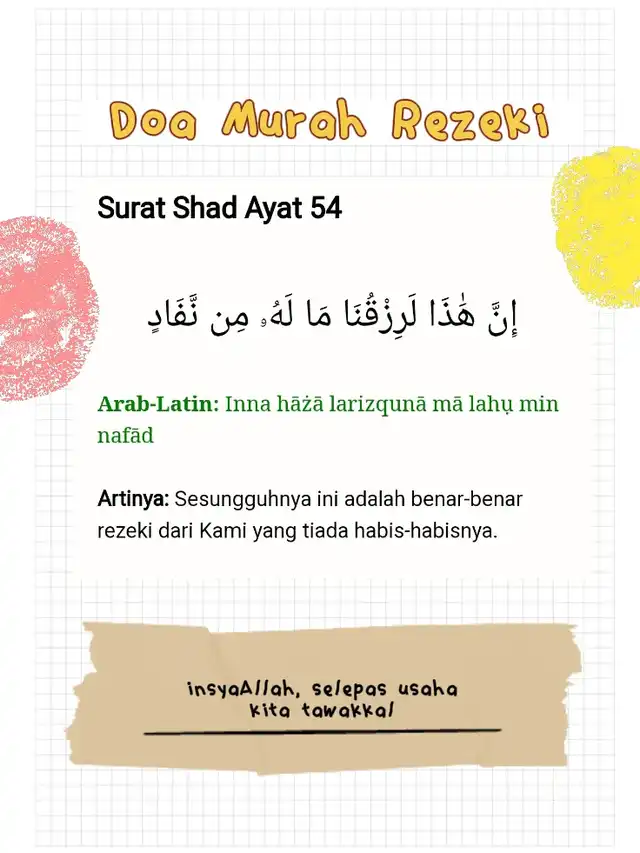 Doa Murah Rezeki
Surat Shad Ayat 54
إِنَّ هَٰذَا لَرِزْقُنَا مَا لَهُۥ مِن نَّفَادٍ
Arab-Latin: Inna hāżā larizqunā mā lahụ min
nafād
Artinya: Sesungguhnya ini adalah benar-benar
rezeki dari Kami yang tiada habis-habisnya.
insyaAllah, selepas usaha
kita tawakkal